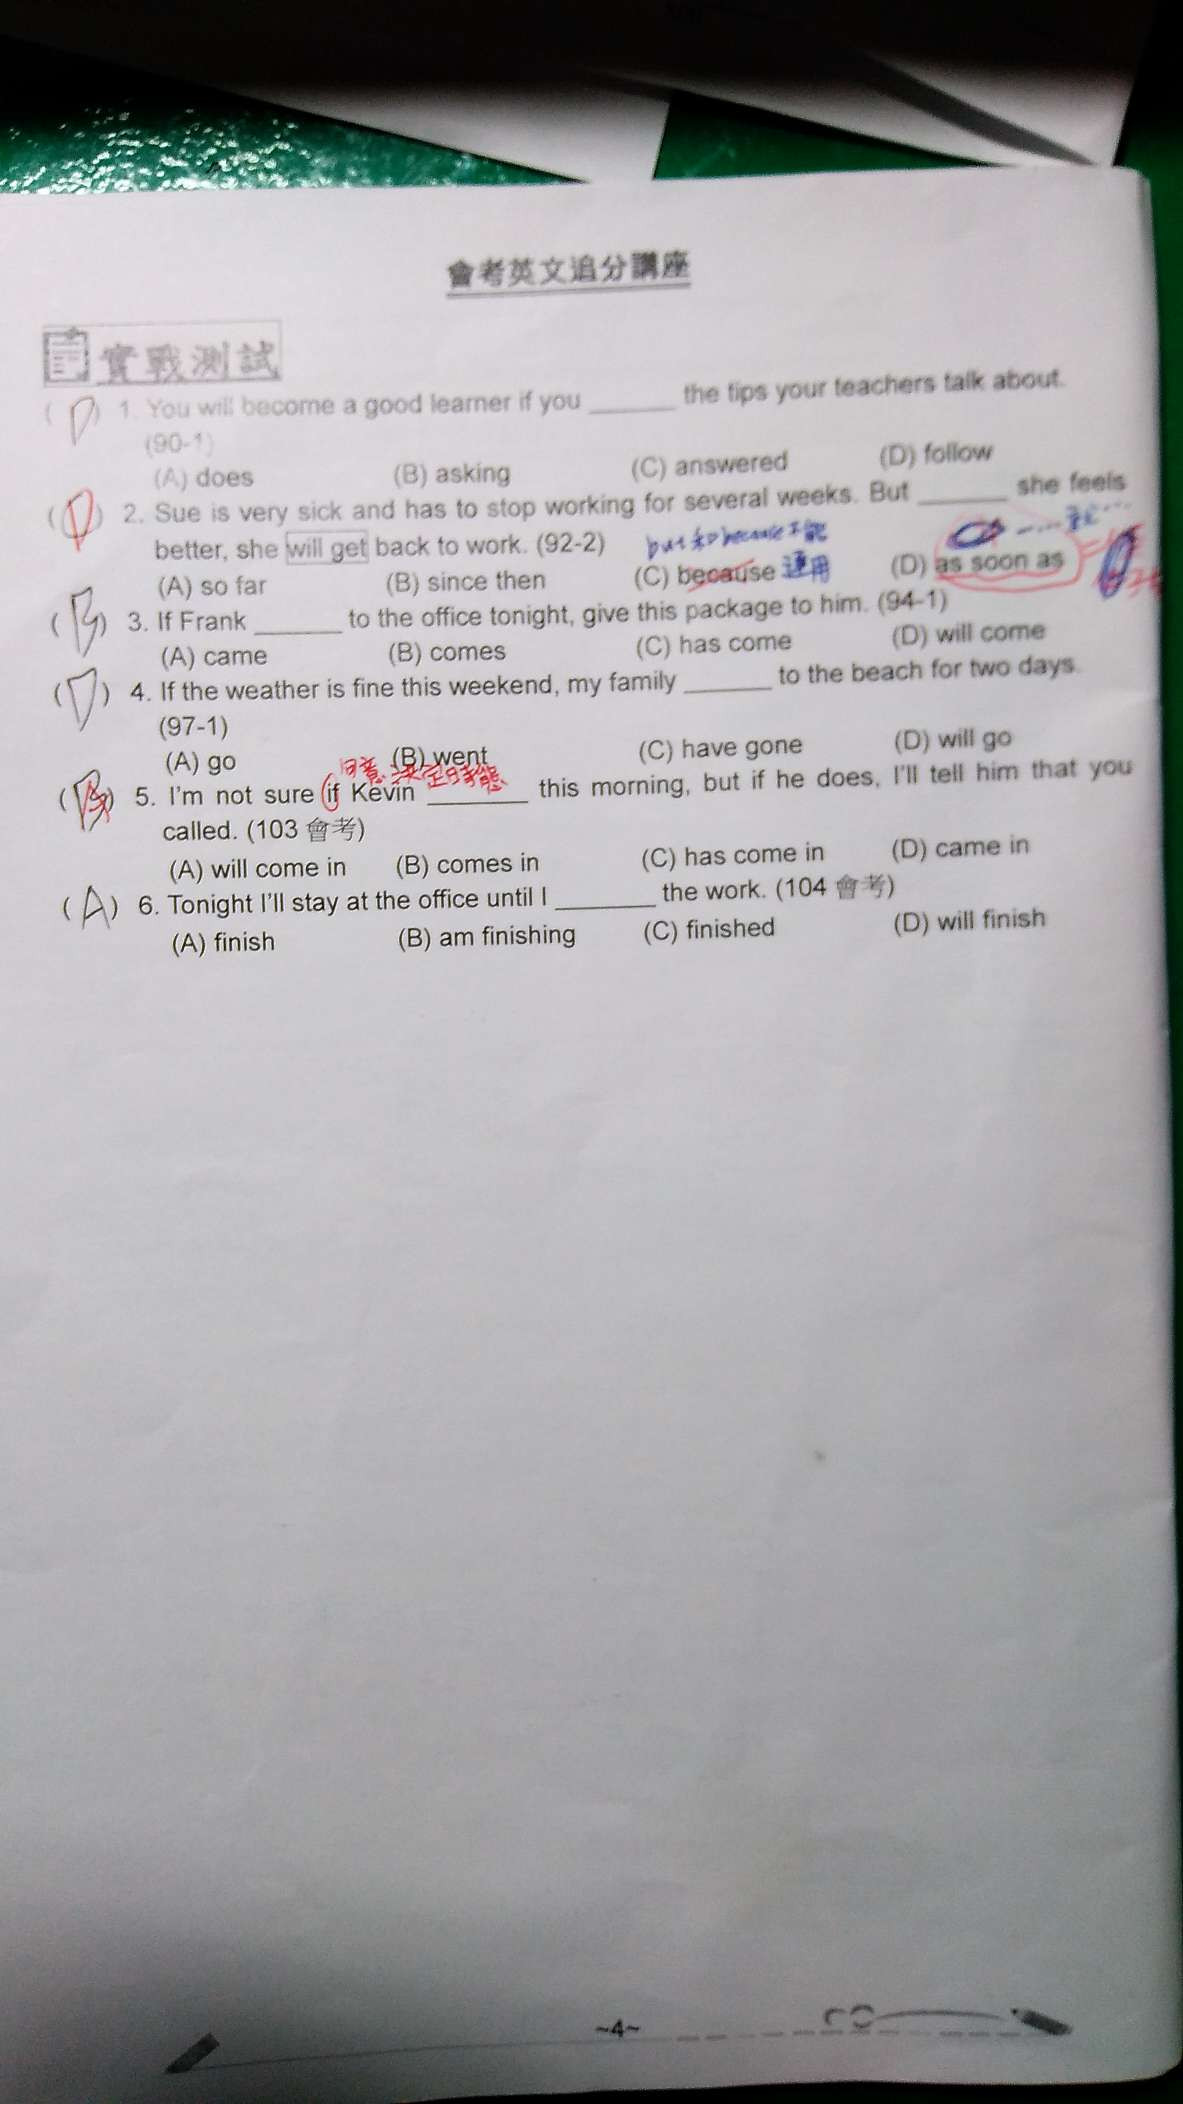 會考英文追分講座
實戰測試
(D) 1. You will become a good learner if you ______ the tips your teachers talk about.
(90-1)
(A) does (B) asking (C) answered (D) follow
(D) 2. Sue is very sick and has to stop working for several weeks. But ______ she feels
better, she will get back to work. (92-2) but 和 because 不能
(A) so far (B) since then (C) because 連用 (D) as soon as
(B) 3. If Frank ______ to the office tonight, give this package to him. (94-1)
(A) came (B) comes (C) has come (D) will come
(D) 4. If the weather is fine this weekend, my family ______ to the beach for two days.
(97-1)
(A) go (B) went (C) have gone (D) will go
決定時態
( ) 5. I'm not sure if Kevin ______ this morning, but if he does, I'll tell him that you
called. (103 會考)
(A) will come in (B) comes in (C) has come in (D) came in
(A) 6. Tonight I'll stay at the office until I ______ the work. (104 會考)
(A) finish (B) am finishing (C) finished (D) will finish
~4~